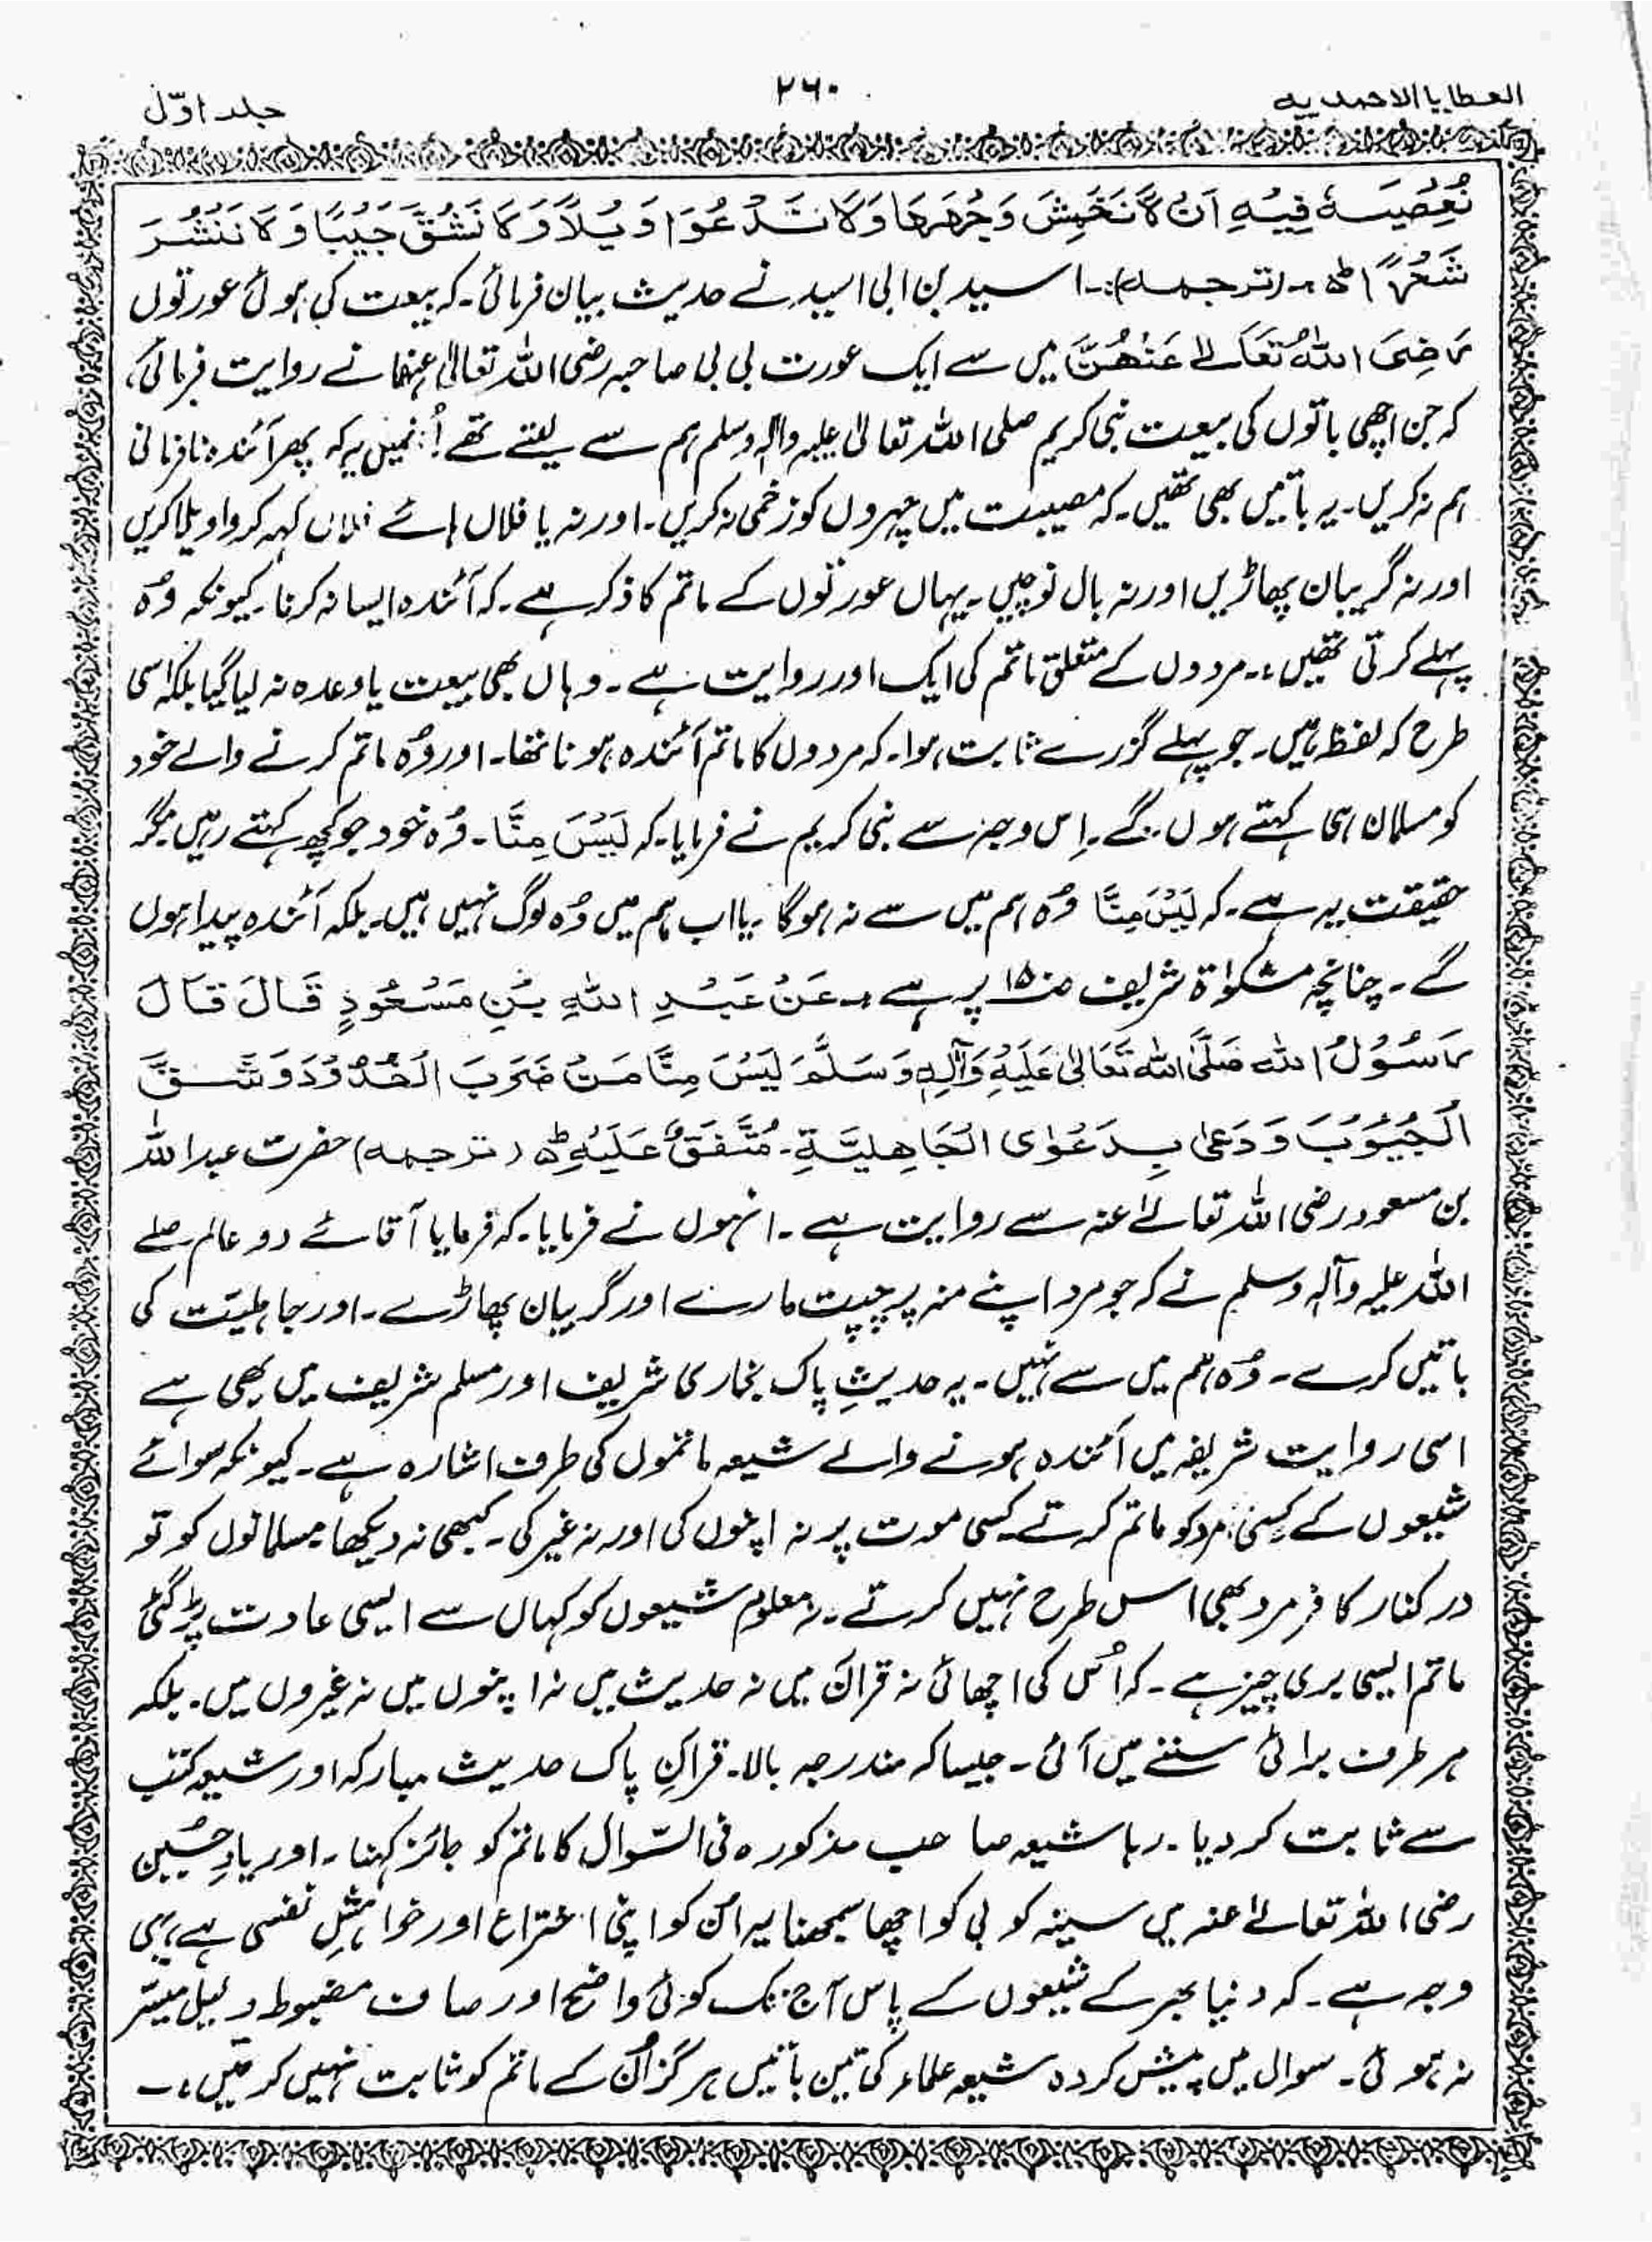 العطایا الاحمدیہ
۲۶۰
جلد اوّل
نَعْصِیَہٗ فِیْہِ اَنْ لَّا نَخْمِشَ وَجْھَھَا وَلَا نَدْعُوَا وَیْلًا وَلَا نَشُقَّ جَیْبًا وَلَا نَنْشُرَ
شَعْرًا ط۔ (ترجمہ):۔ اسید بن ابی اسید نے حدیث بیان فرمائی۔ کہ بیعت کی ہوئی عورتوں
رَضِیَ اللہُ تَعَالےٰ عَنْھُنَّ میں سے ایک عورت بی بی صاحبہ رضی اللہ تعالیٰ عنھا نے روایت فرمائی،
کہ جن اچھی باتوں کی بیعت نبی کریم صلی اللہ تعالیٰ علیہ واٰلہ وسلم ہم سے لیتے تھے اُنہیں یہ کہ پھر آئندہ نافرمانی
ہم نہ کریں۔ یہ باتیں بھی تھیں۔ کہ مصیبت میں چہروں کو زخمی نہ کریں۔ اور نہ یا فلاں ہائے فلاں کہہ کر واویلا کریں
اور نہ گریبان پھاڑیں اور نہ بال نوچیں۔ یہاں عورتوں کے ماتم کا ذکر ہے۔ کہ آئندہ ایسا نہ کرنا۔ کیونکہ وُہ
پہلے کرتی تھیں،۔ مردوں کے متعلق ماتم کی ایک اور روایت ہے۔ وہاں بھی بیعت یا وعدہ نہ لیا گیا بلکہ اسی
طرح کہ لفظ ہیں۔ جو پہلے گزرے ثابت ہوا۔ کہ مردوں کا ماتم آئندہ ہونا تھا۔ اور وُہ ماتم کرنے والے خود
کو مسلمان ہی کہتے ہوں گے۔ اِس وجہ سے نبی کریم نے فرمایا۔ کہ لَیْسَ مِنَّا۔ وُہ خود جو کچھ کہتے رہیں مگر
حقیقت یہ ہے۔ کہ لَیْسَ مِنَّا وُہ ہم میں سے نہ ہوگا۔ یا اب ہم میں وُہ لوگ نہیں ہیں۔ بلکہ آئندہ پیدا ہوں
گے۔ چنانچہ مشکوٰۃ شریف صـ۱۵۰ پر ہے:۔ عَنْ عَبْدِ اللہِ بْنِ مَسْعُوْدٍ قَالَ قَالَ
رَسُوْلُ اللہِ صَلَّی اللہ تَعَالیٰ عَلَیْہِ وَآلِہٖ وَسَلَّمَ لَیْسَ مِنَّا مَنْ ضَرَبَ الْخُدُوْدَ وَشَقَّ
الْجُیُوْبَ وَدَعیٰ بِدَعْوٰی الْجَاھِلِیَّۃِ۔ مُتَّفَقٌ عَلَیْہِ ط (ترجمہ) حضرت عبداللہ
بن مسعود رضی اللہ تعالےٰ عنہ سے روایت ہے۔ انہوں نے فرمایا۔ کہ فرمایا آقائے دو عالم صلے
اللہ علیہ وآلہ وسلم نے کہ جو مرد اپنے منہ پر چپت مارے اور گریبان پھاڑے۔ اور جاہلیّت کی
باتیں کرے۔ وُہ ہم میں سے نہیں۔ یہ حدیثِ پاک بخاری شریف اور مسلم شریف میں بھی ہے
اسی روایت شریفہ میں آئندہ ہونے والے شیعہ ماتموں کی طرف اشارہ ہے۔ کیونکہ سوائے
شیعوں کے کسی مرد کو ماتم کرتے کسی موت پر نہ اپنوں کی اور نہ غیر کی۔ کبھی نہ دیکھا مسلمانوں کو تو
درکنار کافر مرد بھی اس طرح نہیں کرتے۔ نہ معلوم شیعوں کو کہاں سے ایسی عادت پڑ گئی
ماتم ایسی بری چیز ہے۔ کہ اُس کی اچھائی نہ قرآن میں نہ حدیث میں نہ اپنوں میں نہ غیروں میں۔ بلکہ
ہر طرف برائی سننے میں آئی۔ جیسا کہ مندرجہ بالا۔ قرآنِ پاک حدیث مبارکہ اور شیعہ کتب
سے ثابت کر دیا۔ رہا شیعہ صاحب مذکورہ فی السّوال کا ماتم کو جائز کہنا۔ اور یادِ حسین
رضی اللہ تعالےٰ عنہ میں سینہ کوبی کو اچھا سمجھنا یہ ان کو اپنی اختراع اور خواہشِ نفسی ہے، یہی
وجہ ہے۔ کہ دنیا بھر کے شیعوں کے پاس آج تک کوئی واضح اور صاف مضبوط دلیل میسّر
نہ ہوئی۔ سوال میں پیش کردہ شیعہ علماء کی تین باتیں ہرگز اُن کے ماتم کو ثابت نہیں کرتیں،۔